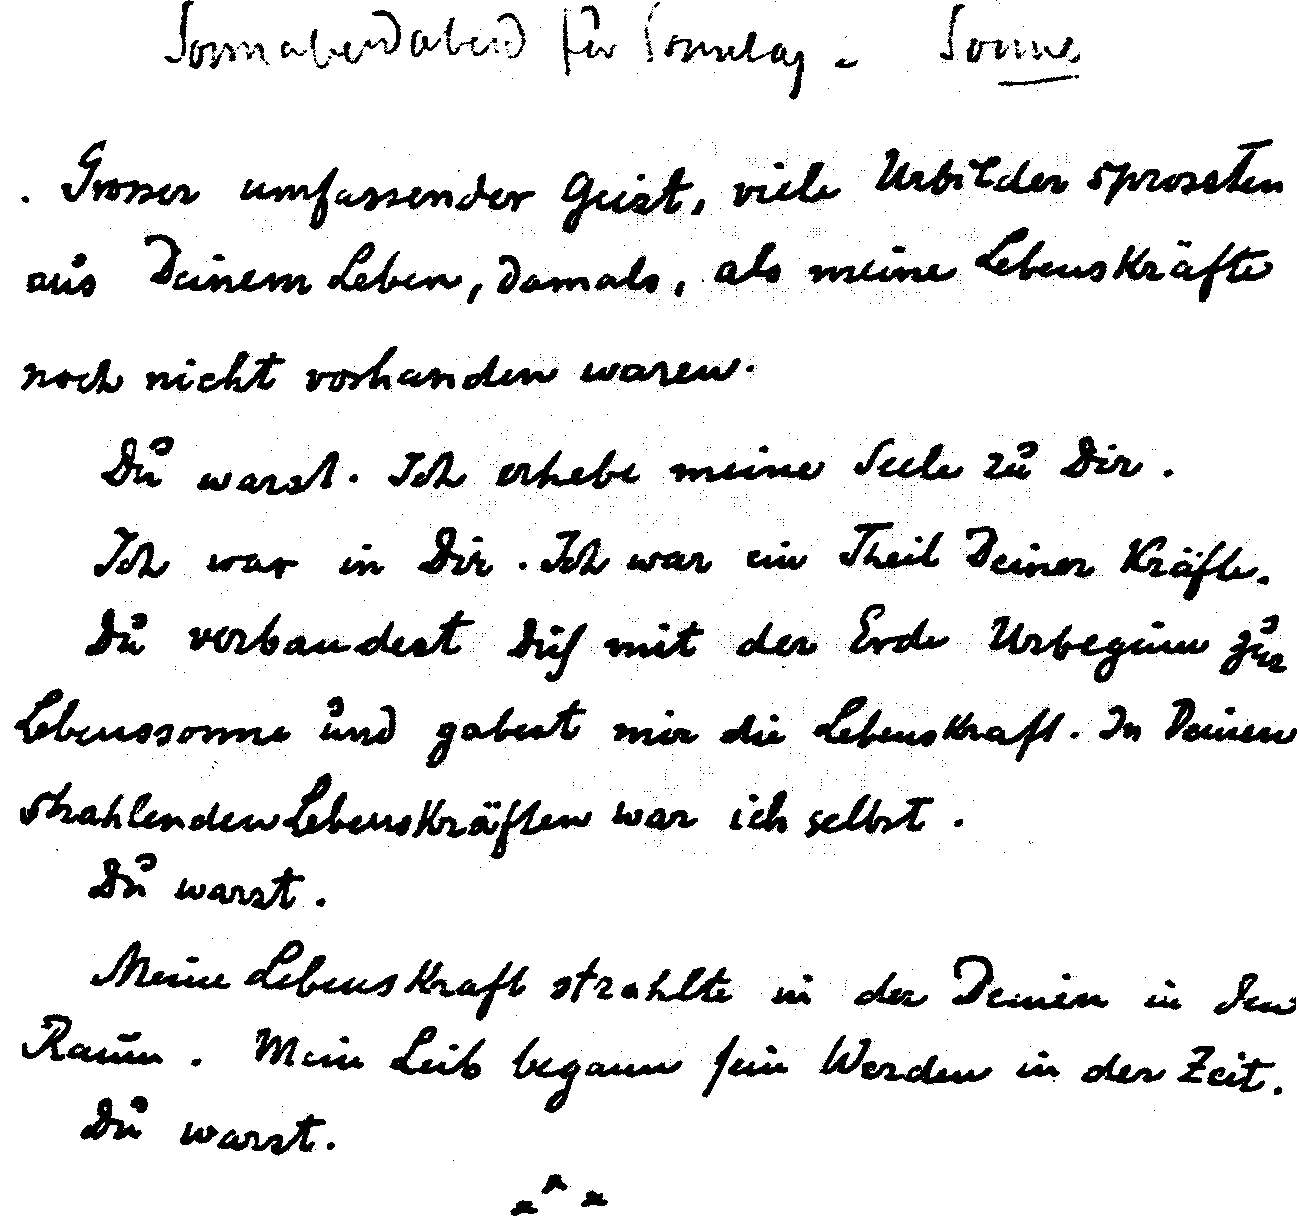 Sonnabendabend für Sonntag - Sonne
. Grosser umfassender Geist, viele Urbilder sprossten
aus Deinem Leben, damals, als meine Lebenskräfte
noch nicht vorhanden waren.
Du warst. Ich erhebe meine Seele zu Dir.
Ich war in Dir. Ich war ein Theil Deiner Kräfte.
Du verbandest Dich mit der Erde Urbeginn zur
Lebenssonne und gabest mir die Lebenskraft. In Deinen
strahlenden Lebenskräften war ich selbst.
Du warst.
Meine Lebenskraft strahlte in der Deinen in den
Raum. Mein Leib begann sein Werden in der Zeit.
Du warst.